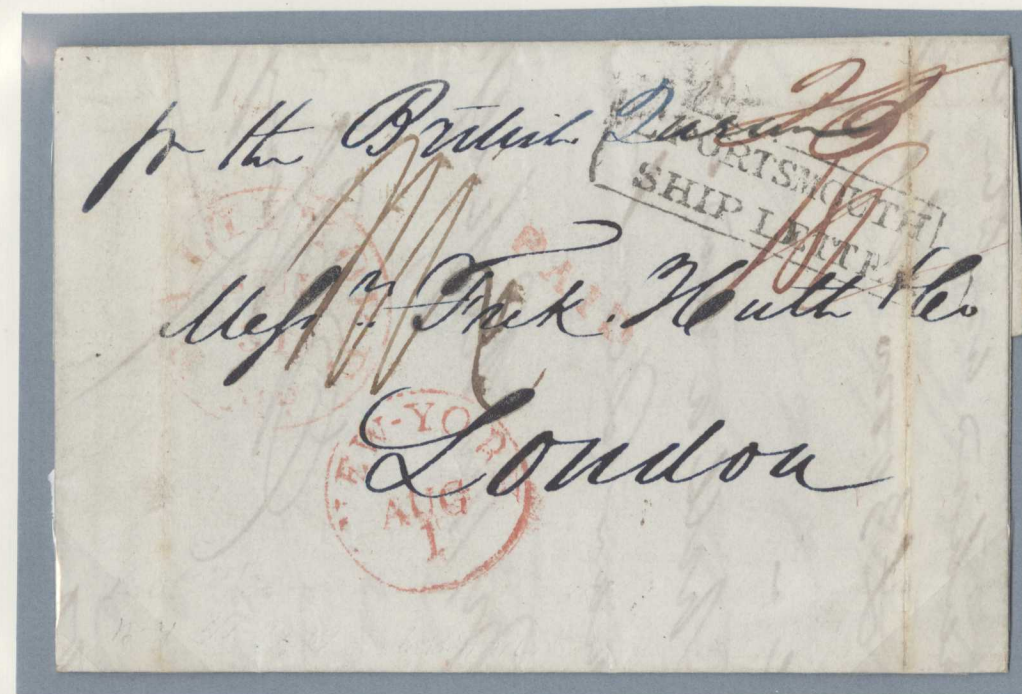 pr the British Queen
PORTSMOUTH
SHIP LETTER
PAID
Messrs. Fredk. Huth & Co.
London
NEW-YORK
AUG
1